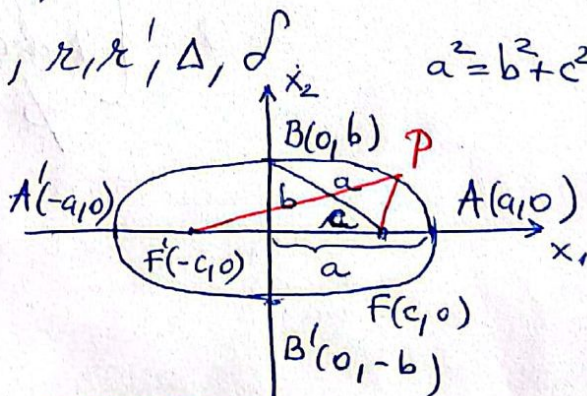 , r, r', Δ, δ a² = b² + c²
x₂
B(0, b) P
A'(-a, 0) b a A(a, 0)
c
F'(-c, 0) a x₁
F(c, 0)
B'(0, -b)